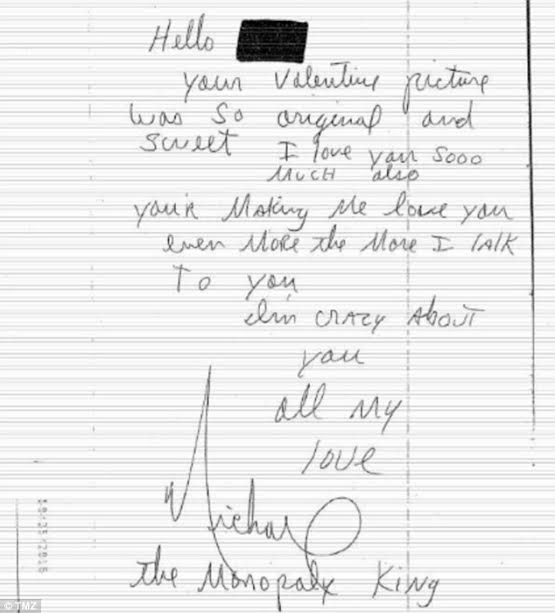 Hello
your Valentine picture
was so original and
sweet I love you sooo
much also
you'r Making Me love you
even More the More I talk
To you,
I'm CRAZY ABOUT
you
all My
love
Michael
the Monopoly King
10/25/2016
© TMZ